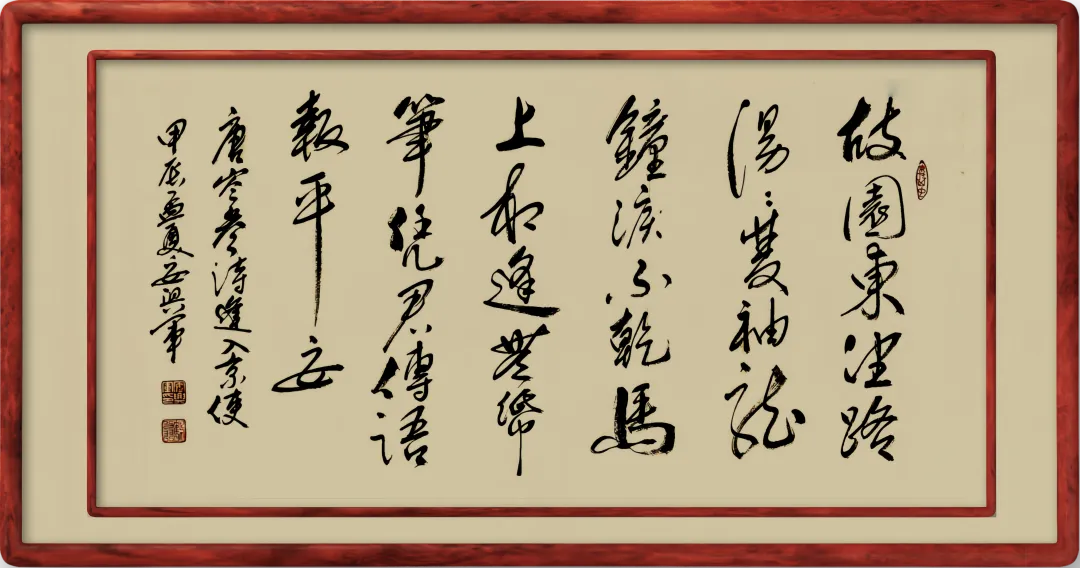 故園東望路
漫々雙袖龍
鐘淚不乾馬
上相逢無紙
筆憑君傳語
報平安
唐岑參詩進入京使
甲辰孟夏安興軍